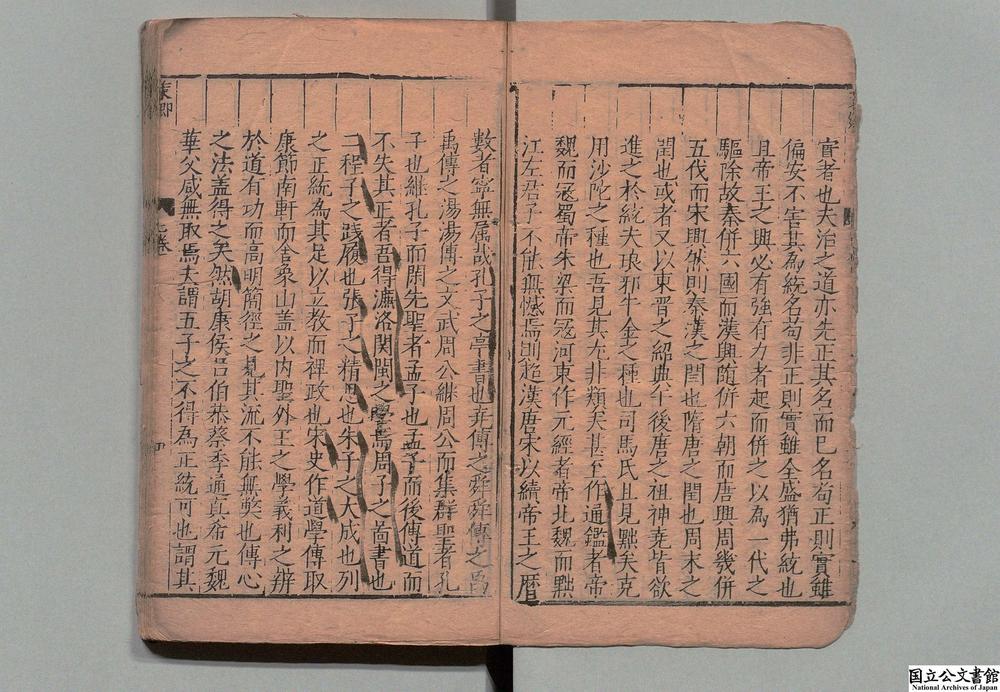 實者也夫治之道亦先正其名而已名苟正則實雖
偏安不害其為統名苟非正則實雖全盛猶弗統也
且帝王之興必有強有力者起而併之以為一代之
驅除故秦併六國而漢興隋併六朝而唐興周幾併
五伐而宋興然則秦漢之閏也隋唐之閏也周末之
閏也或者又以東晋之紹典午後唐之祖神堯皆欲
進之於統夫琅邪牛金之種也司馬氏且見黜矣克
用沙陀之種也吾見其尤非類矣甚至作通鑑者帝
魏而寇蜀帝朱梁而寇河東作元經者帝北魏而黜
江左君子不能無憾焉則超漢唐宋以續帝王之曆
數者寧無属哉孔子之亭書也堯傳之舜舜傳之禹
禹傳之湯湯傳之文武周公継周公而集群聖者孔
子也継孔子而闢先聖者孟子也孟子而後傳道而
不失其正者吾得濂洛関閩之學焉周子之啚書也
二程子之踐履也張子之精思也朱子之大成也列
之正統為其足以立教而裨政也宋史作道學傳取
康節南軒而舍象山盖以内聖外王之學義利之辨
於道有功而高明簡徑之見其流不能無獘也傳心
之法盖得之矣然胡康侯吕伯恭蔡季通真希元魏
華父咸無取焉夫謂五子之不得為正統可也謂其
策卿
七卷
国立公文書館
National Archives of Japan